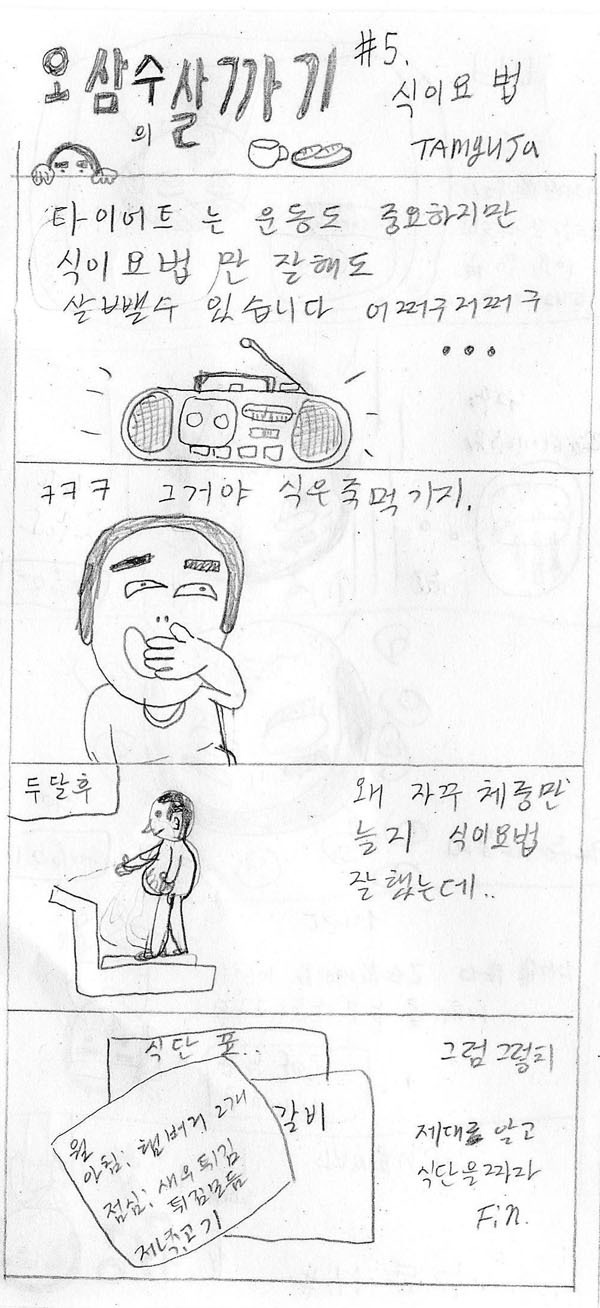 오삼수살까기
의
#5.
식이요법
TAMGUJA
다이어트는 운동도 중요하지만
식이요법만 잘해도
살뺄수 있습니다 어쩌구저쩌구
...
ㅋㅋㅋ 그거야 식은죽먹기지.
두달후
왜 자꾸 체중만
늘지 식이요법
잘했는데..
식단표.
갈비
월
아침: 햄버거 2개
점심: 새우튀김
튀김모듬
저녁:고기
그럼그렇지
제대로 알고
식단을짜라
Fin.